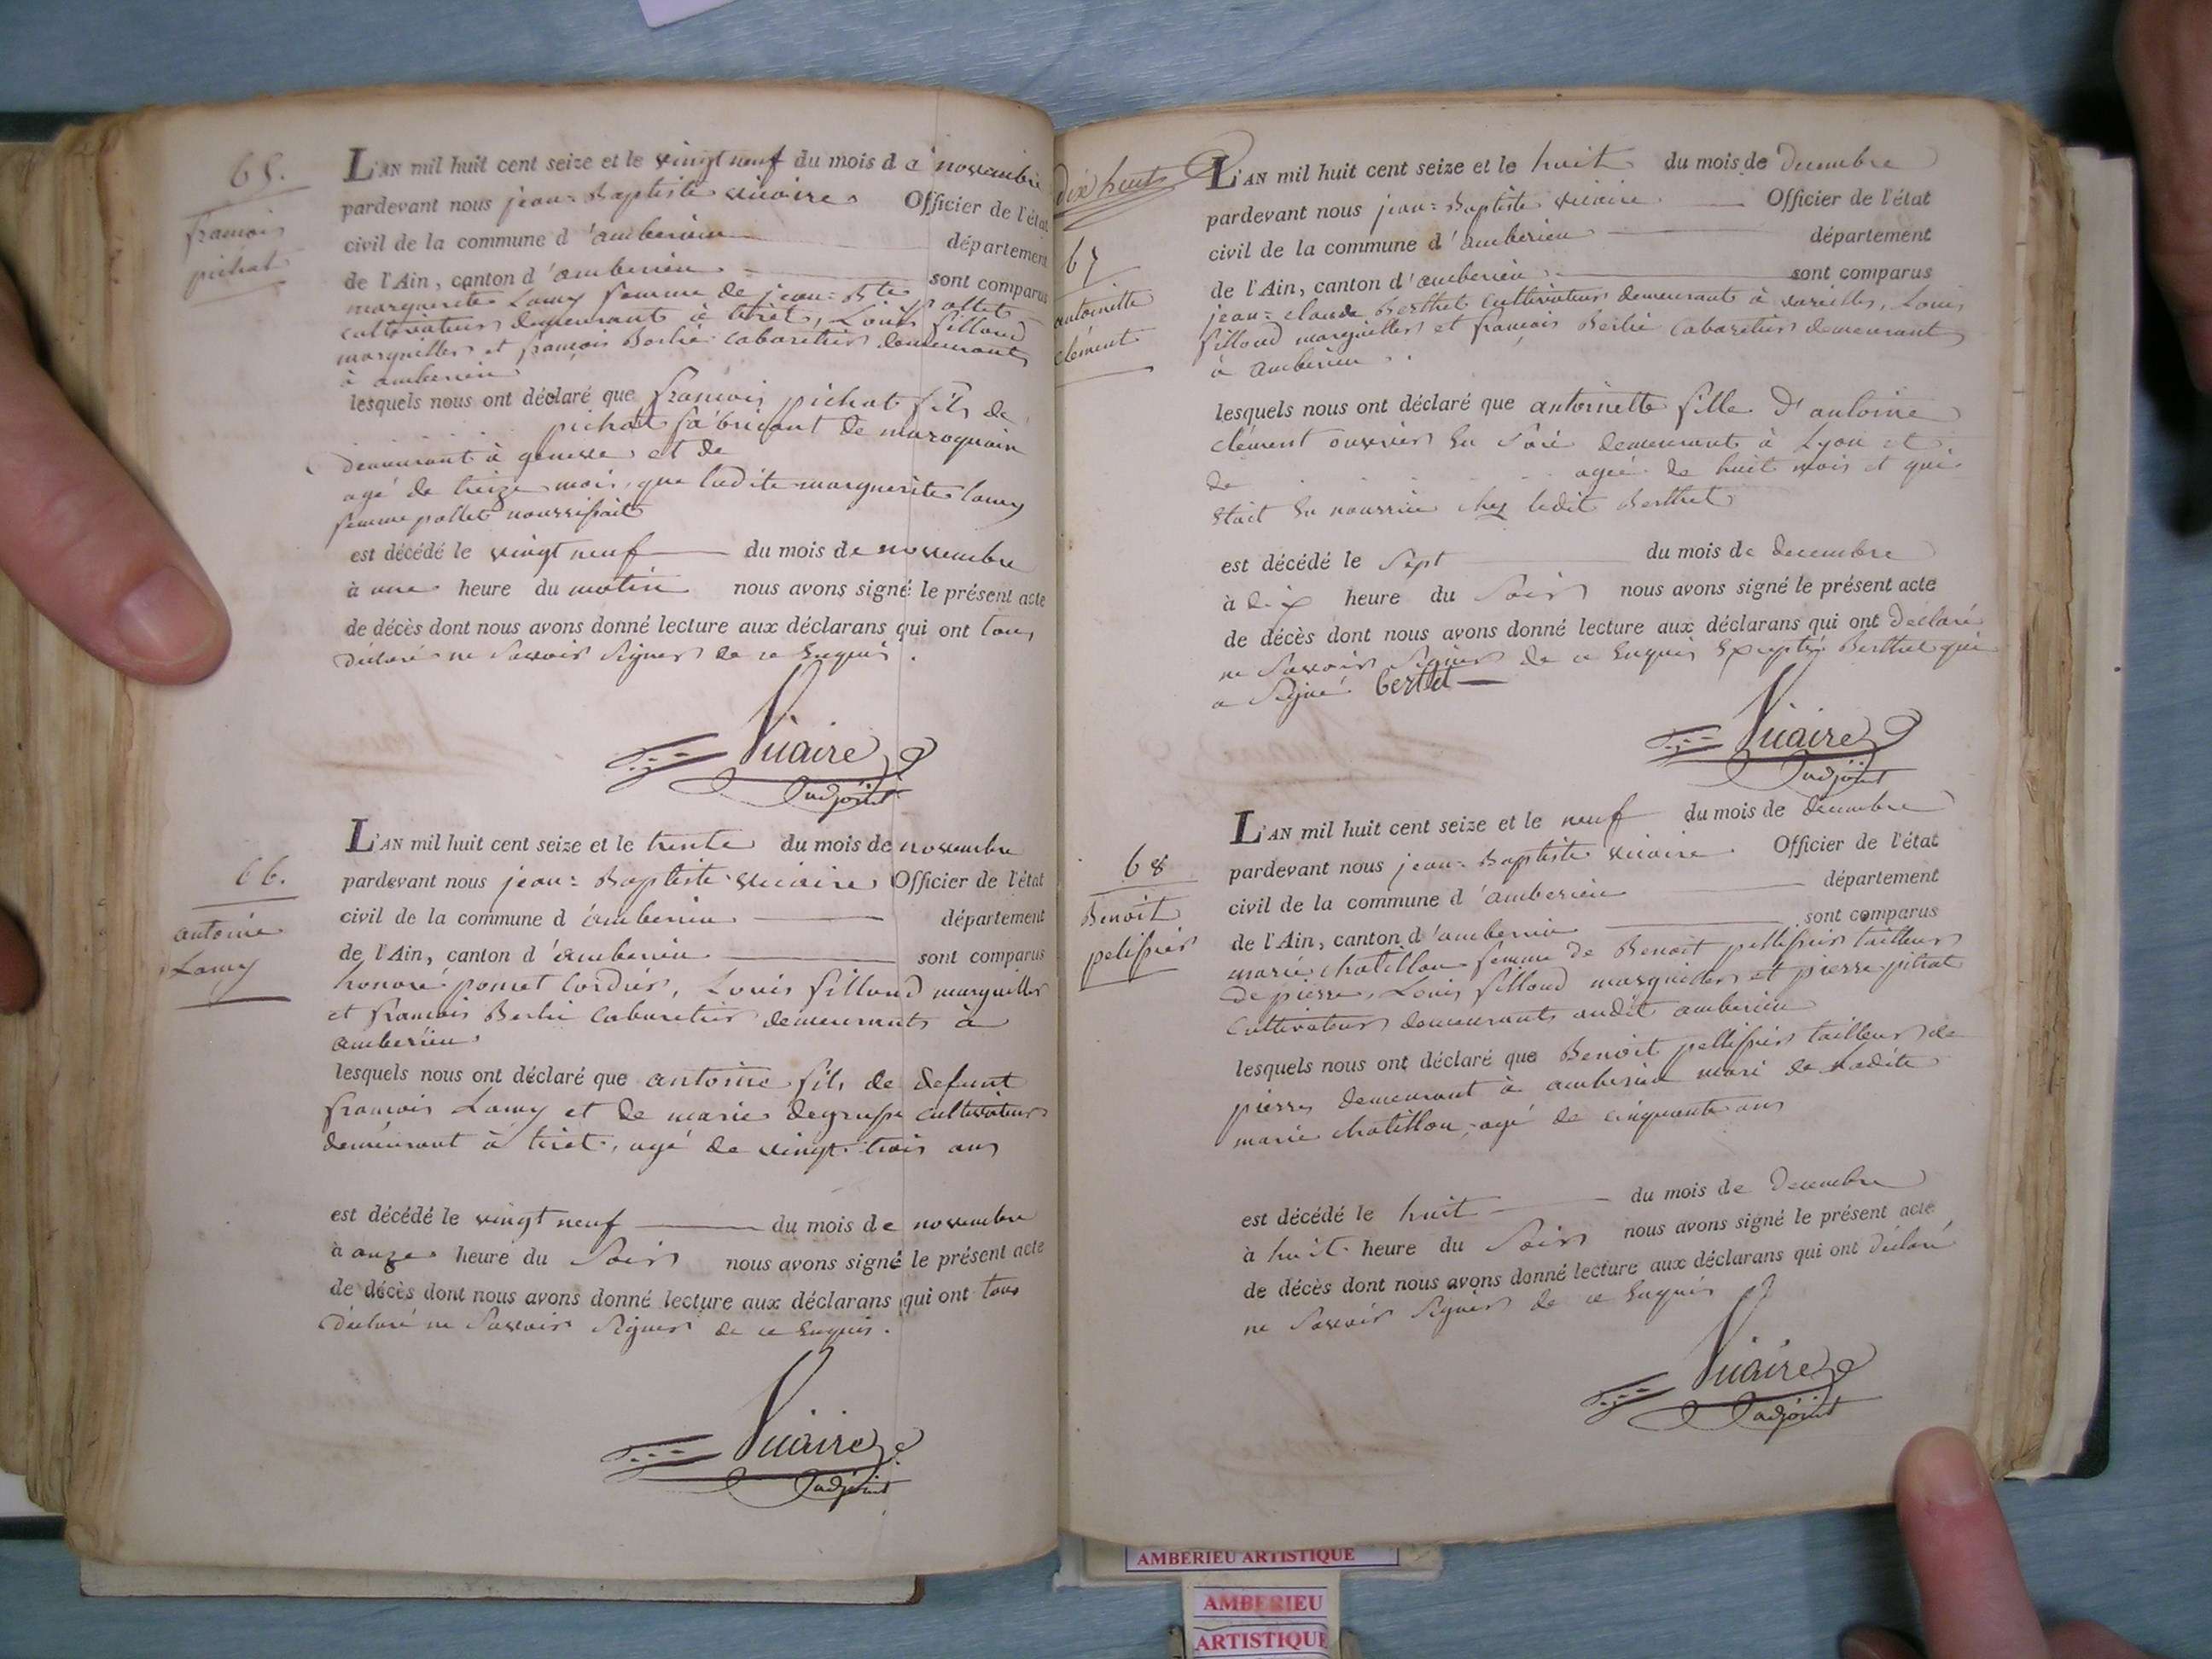 65.
françois
pichat
L'AN mil huit cent seize et le vingt neuf du mois de novembre
pardevant nous jean=Baptiste vicaire Officier de l'état
civil de la commune d'amberieu département
de l'Ain, canton d'amberieu sont comparus
marguerite Lamy femme de jean=Bte pollet
cultivateur demeurant à tiret, Louis filloud
marguiller et françois Berlié cabaretier demeurants
à amberieu
lesquels nous ont déclaré que françois pichat fils de
pichat fabricant de maroquain
demeurant à geneve et de
agé de treize mois, que ladite marguerite lamy
femme pollet nourrissait
est décédé le vingt neuf du mois de novembre
à une heure du matin nous avons signé le présent acte
de décès dont nous avons donné lecture aux déclarans qui ont tous
déclaré ne savoir signer de ce enquis.
Vicaire
adjoint
66.
antoine
Lamy
L'AN mil huit cent seize et le trente du mois de novembre
pardevant nous jean=Baptiste vicaire Officier de l'état
civil de la commune d'amberieu département
de l'Ain, canton d'amberieu sont comparus
honoré pomet cordier, Louis filloud marguiller
et françois Berlié cabaretier demeurants à
amberieu
lesquels nous ont déclaré que antoine fils de defunt
françois Lamy et de marie degrusse cultivateur
demeurant à tiret, agé de vingt trois ans
est décédé le vingt neuf du mois de novembre
à onze heure du soir nous avons signé le présent acte
de décès dont nous avons donné lecture aux déclarans qui ont tous
déclaré ne savoir signer de ce enquis.
Vicaire
adjoint
dix huit
67
antoinette
clément
L'AN mil huit cent seize et le huit du mois de decembre
pardevant nous jean=Baptiste vicaire Officier de l'état
civil de la commune d'amberieu département
de l'Ain, canton d'amberieu sont comparus
jean=claude Berthet cultivateur demeurant à vareilles, Louis
filloud marguiller et françois Berlié cabaretier demeurant
à amberieu
lesquels nous ont déclaré que antoinette fille d'antoine
clément ouvrier en soie demeurant à Lyon et
de agée de huit mois et qui
etait en nourrice chez ledit Berthet
est décédé le sept du mois de decembre
à dix heure du soir nous avons signé le présent acte
de décès dont nous avons donné lecture aux déclarans qui ont declaré
ne savoir signer de ce enquis excepté Berthet qui
a signé Bertet
Vicaire
adjoint
68
Benoit
pelissier
L'AN mil huit cent seize et le neuf du mois de decembre
pardevant nous jean=Baptiste vicaire Officier de l'état
civil de la commune d'amberieu département
de l'Ain, canton d'amberieu sont comparus
marie chatillon femme de Benoit pellissier tailleur
de pierre, Louis filloud marguiller et pierre pitrat
cultivateur demeurants audit amberieu
lesquels nous ont déclaré que Benoit pellissier tailleur de
pierre demeurant à amberieu mari de ladite
marie chatillon, agé de cinquante ans
est décédé le huit du mois de decembre
à huit heure du soir nous avons signé le présent acte
de décès dont nous avons donné lecture aux déclarans qui ont déclaré
ne savoir signer de ce enquis
Vicaire
adjoint
AMBERIEU ARTISTIQUE
AMBERIEU
ARTISTIQUE